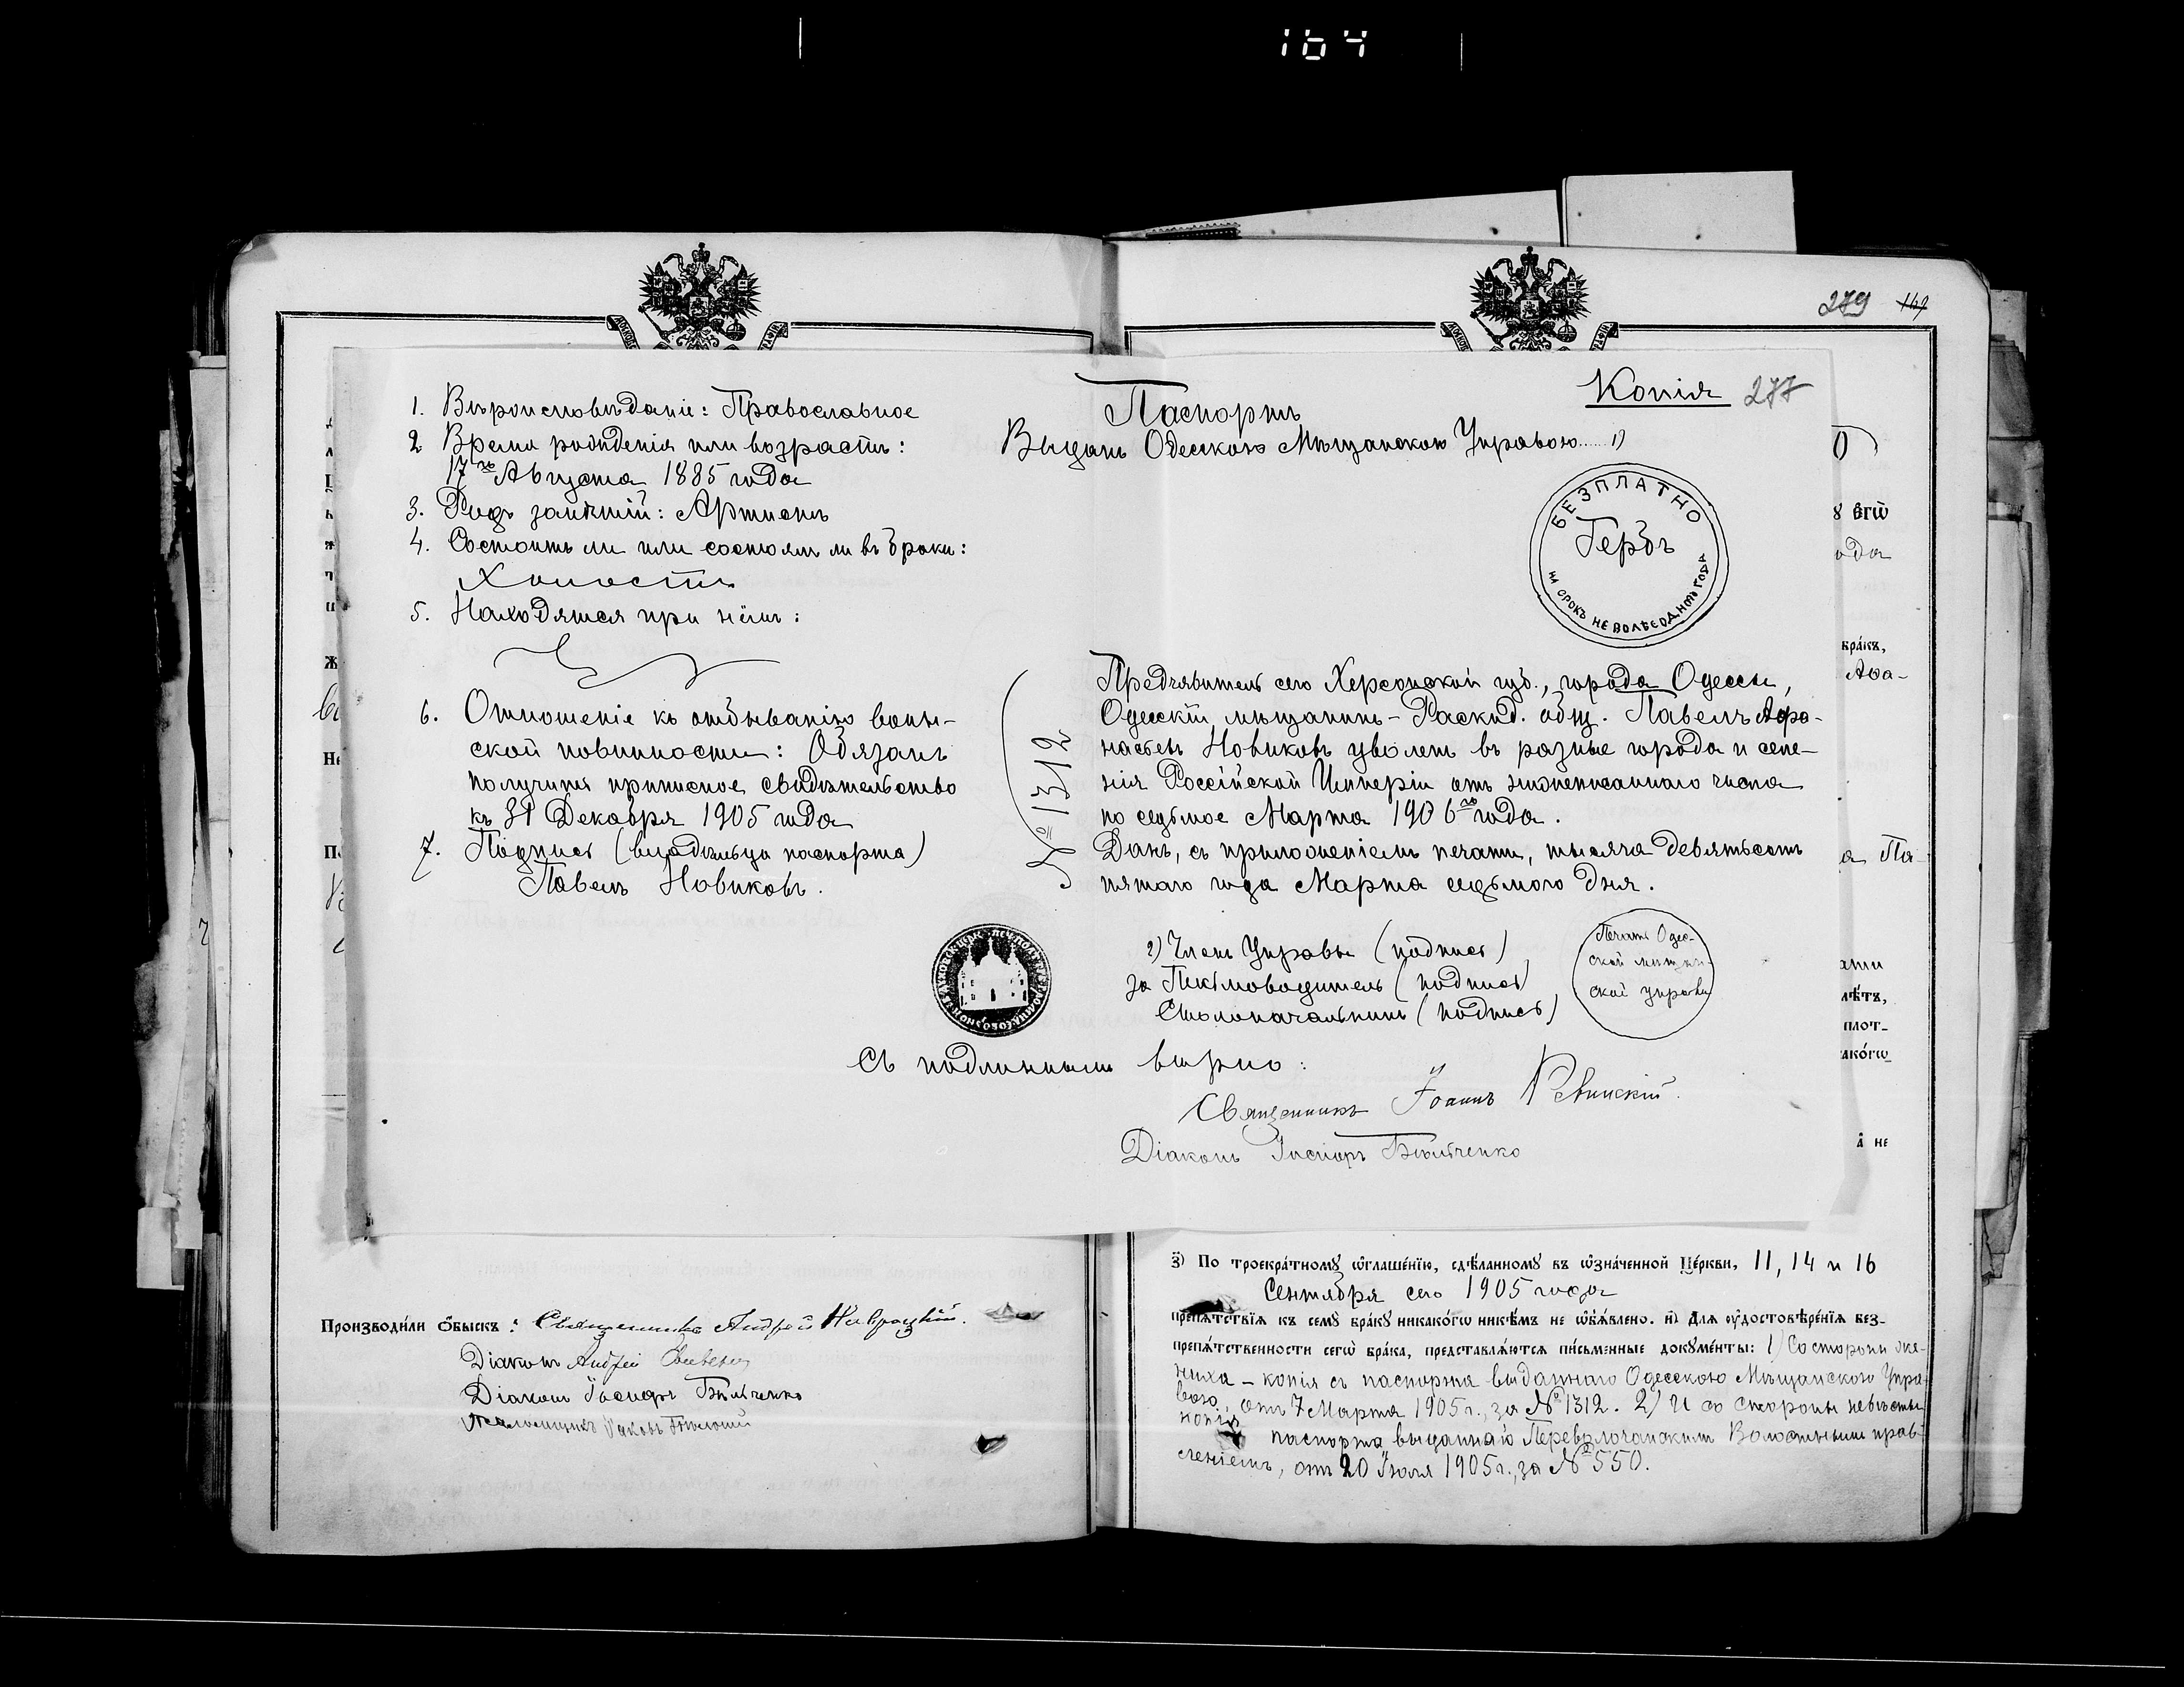 164
279 147
Копія 277
1. Вѣроисповѣданіе: Православное
2 Время рожденія или возрастъ:
17го Августа 1885 года
3. Родъ занятій: Артистъ
4. Состоитъ ли или состоялъ ли въ бракѣ:
Холостъ
5. Находятся при нёмъ:
6. Отношеніе къ отбыванію воин-
ской повинности: Обязанъ
получить приписное свидѣтельство
къ 31 Декабря 1905 года
7. Подпись (владѣльца паспорта)
Павелъ Новиковъ.
Паспортъ
Выданъ Одесскою Мѣщанскою Управою..... 1)
БЕЗПЛАТНО
Гербъ
НА СРОКЪ НЕ БОЛѢЕ ОДНОГО ГОДА
№ 1312
Предъявитель сего Херсонской губ., города Одессы,
Одесскій мѣщанинъ - Раскид. общ. Павелъ Афа-
насьевъ Новиковъ уволенъ въ разные города и селе-
нія Россійской Имперіи отъ нижеписаннаго числа
по седьмое Марта 1906го года.
Данъ, съ приложеніемъ печати, тысяча девятьсотъ
пятаго года Марта седьмого дня.
2) Членъ Управы (подпись)
за Письмоводитель (подпись)
Столоначальникъ (подпись)
Печать Одес-
ской мѣщан-
ской управы
Съ подлиннымъ вѣрно:
Священникъ Іоаннъ
Діаконъ Іосифъ Бѣльченко
Производи́ли ѻ҆́быскъ: Священникъ Андрей Навроцкій.
Діаконъ Андрей
Діаконъ Іосифъ Бѣльченко
Псаломщикъ Іаковъ
вгѡ̀
ода
бра́къ,
Афа-
а Па-
лѣ́тъ,
плот-
ако́гѡ
а҆ не
з҃) По троекра́тномꙋ ѡ҆глаше́нїю, сдѣ́ланномꙋ въ ѡ҆зна́ченной Це́ркви, 11, 14 и 16
Сентября сего 1905 года
препѧ́тствїѧ къ семꙋ̀ бра́кꙋ никако́гѡ никѣ́мъ не ѡ҆б̾ѧ́влено. и҃) Для ᲂу҆достовѣре́нїѧ без-
препѧ́тственности сегѡ̀ бра́ка, представлѧ́ютсѧ пи́сьменные докꙋме́нты: 1) Со стороны же-
ниха - копія съ паспорта выданнаго Одесскою Мѣщанскою Упра-
вою, отъ 7 Марта 1905 г., за № 1312. 2) И со стороны невѣсты
копія паспорта выданнаго Переволочанскимъ Волостнымъ прав-
леніемъ, отъ 20 Іюля 1905 г., за № 550.